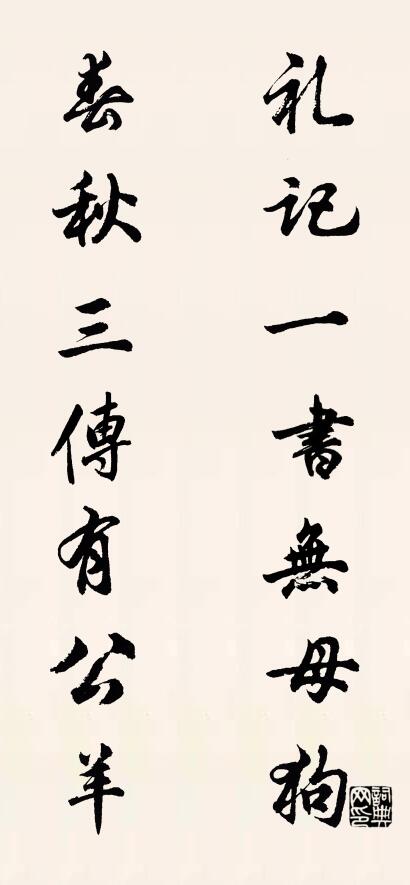 礼记一書無母狗
春秋三傳有公羊
詞典网印